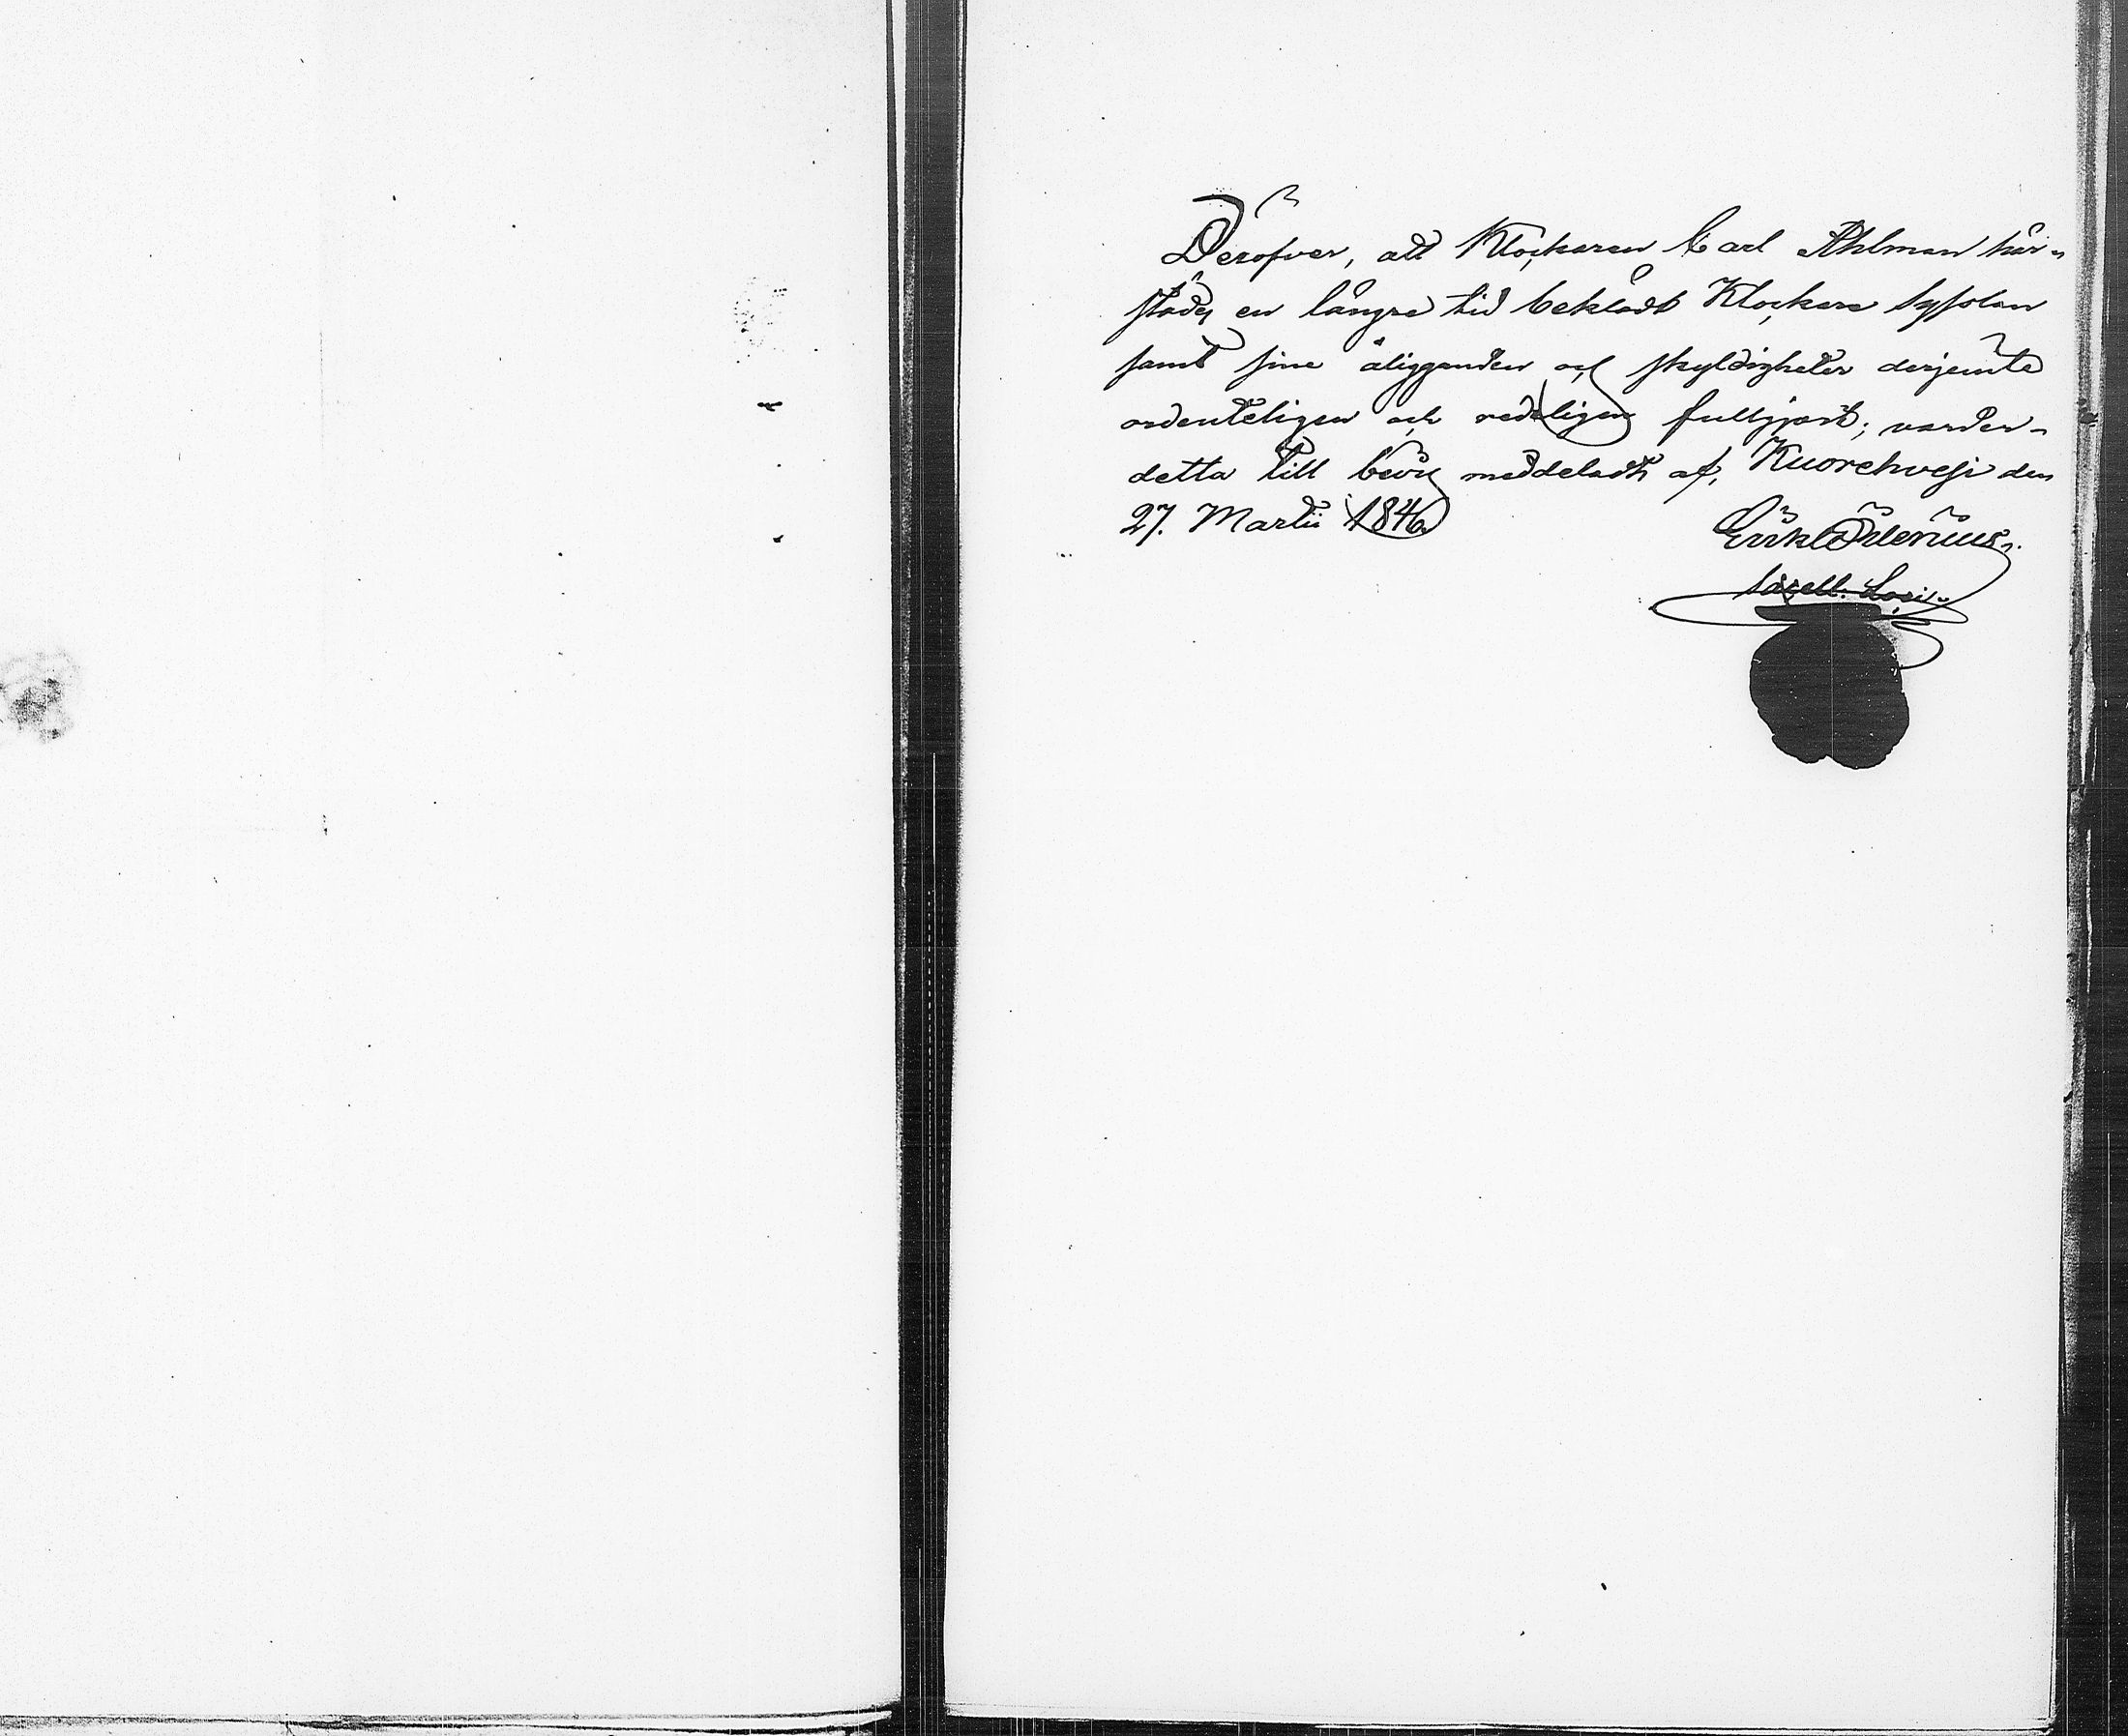 Derofver, att Klockaren Carl Ahlman här-
städes en längre tid beklädt Klockare Syslan
samt sine åligganden och skyldigheter derjemte
ordenteligen och redeligen fullgjort; varder-
detta till bevis meddeladt af, Kuorehvesi den
27. Martii 1846.
Erik
Sacell. Loci.